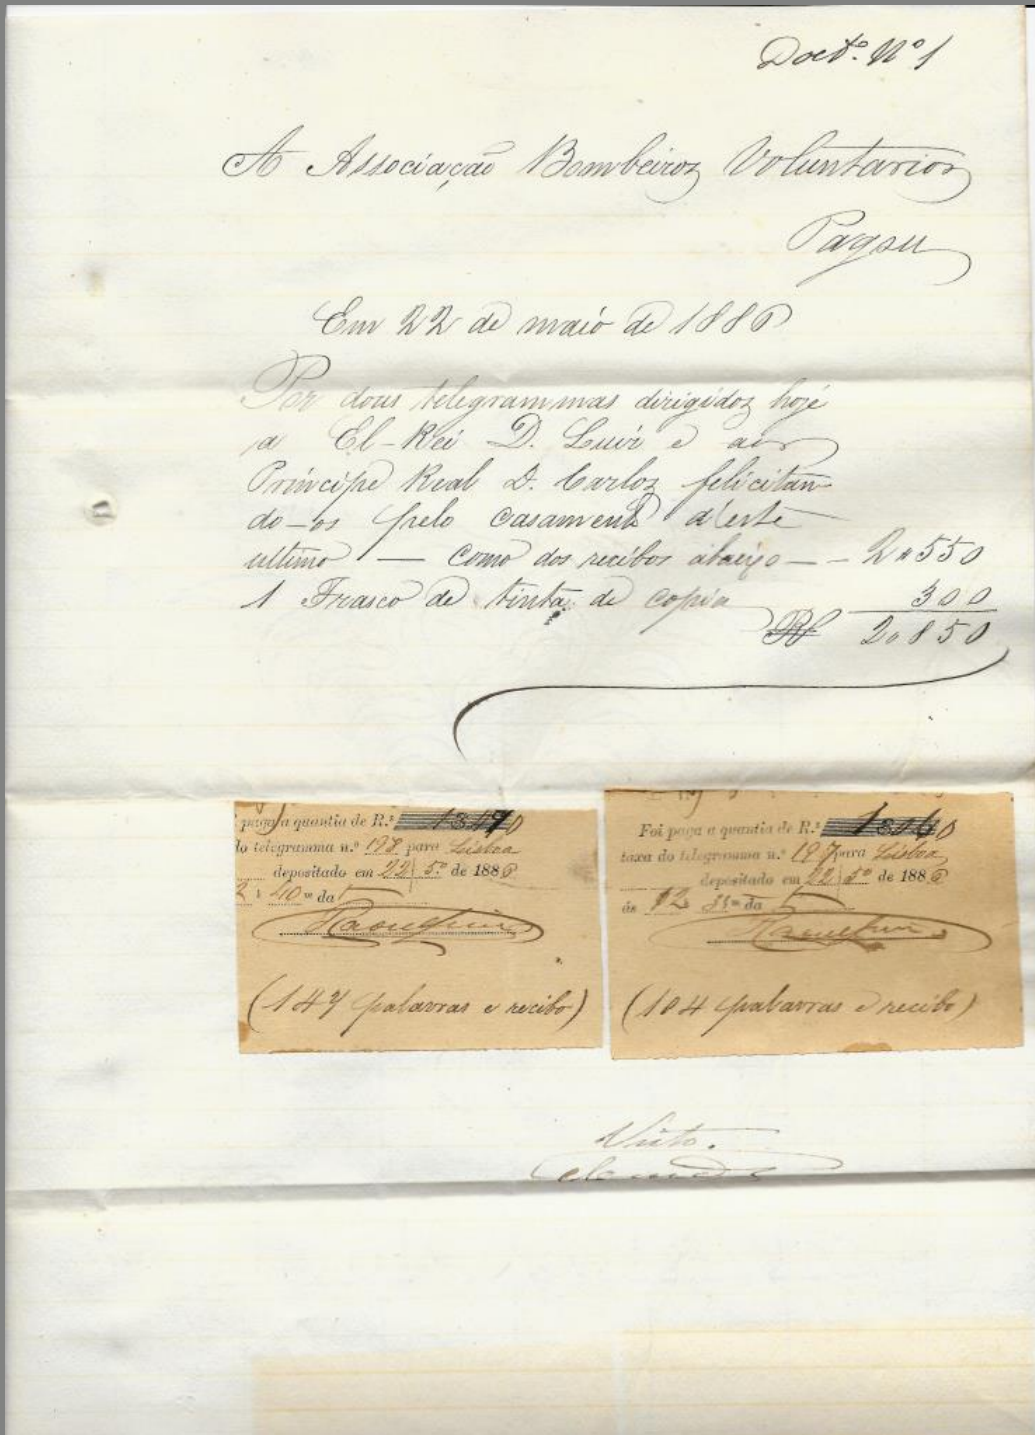 Doct.º Nº 1
A Associação Bombeiros Voluntarios
Pagou
Em 22 de maio de 1886
Por dous telegrammas dirigidos hoje
a El-Rei D. Luiz e ao
Principe Real D. Carlos felicitan
do-os pelo casamento d'este
ultimo — como dos recibos abaixo — — 2"550
1 Frasco de tinta de copia 300
Rs 2"850
paga a quantia de R.s 1490
do telegramma n.º 198 para Lisboa
depositado em 22 | 5º de 1886
2 : 40 m da T
(147 palavras e recibo)
Foi paga a quantia de R.s 1060
taxa do telegramma n.º 197 para Lisboa
depositado em 22 | 5º de 1886
ás 12 35 m da T
(104 palavras e recibo)
Visto.